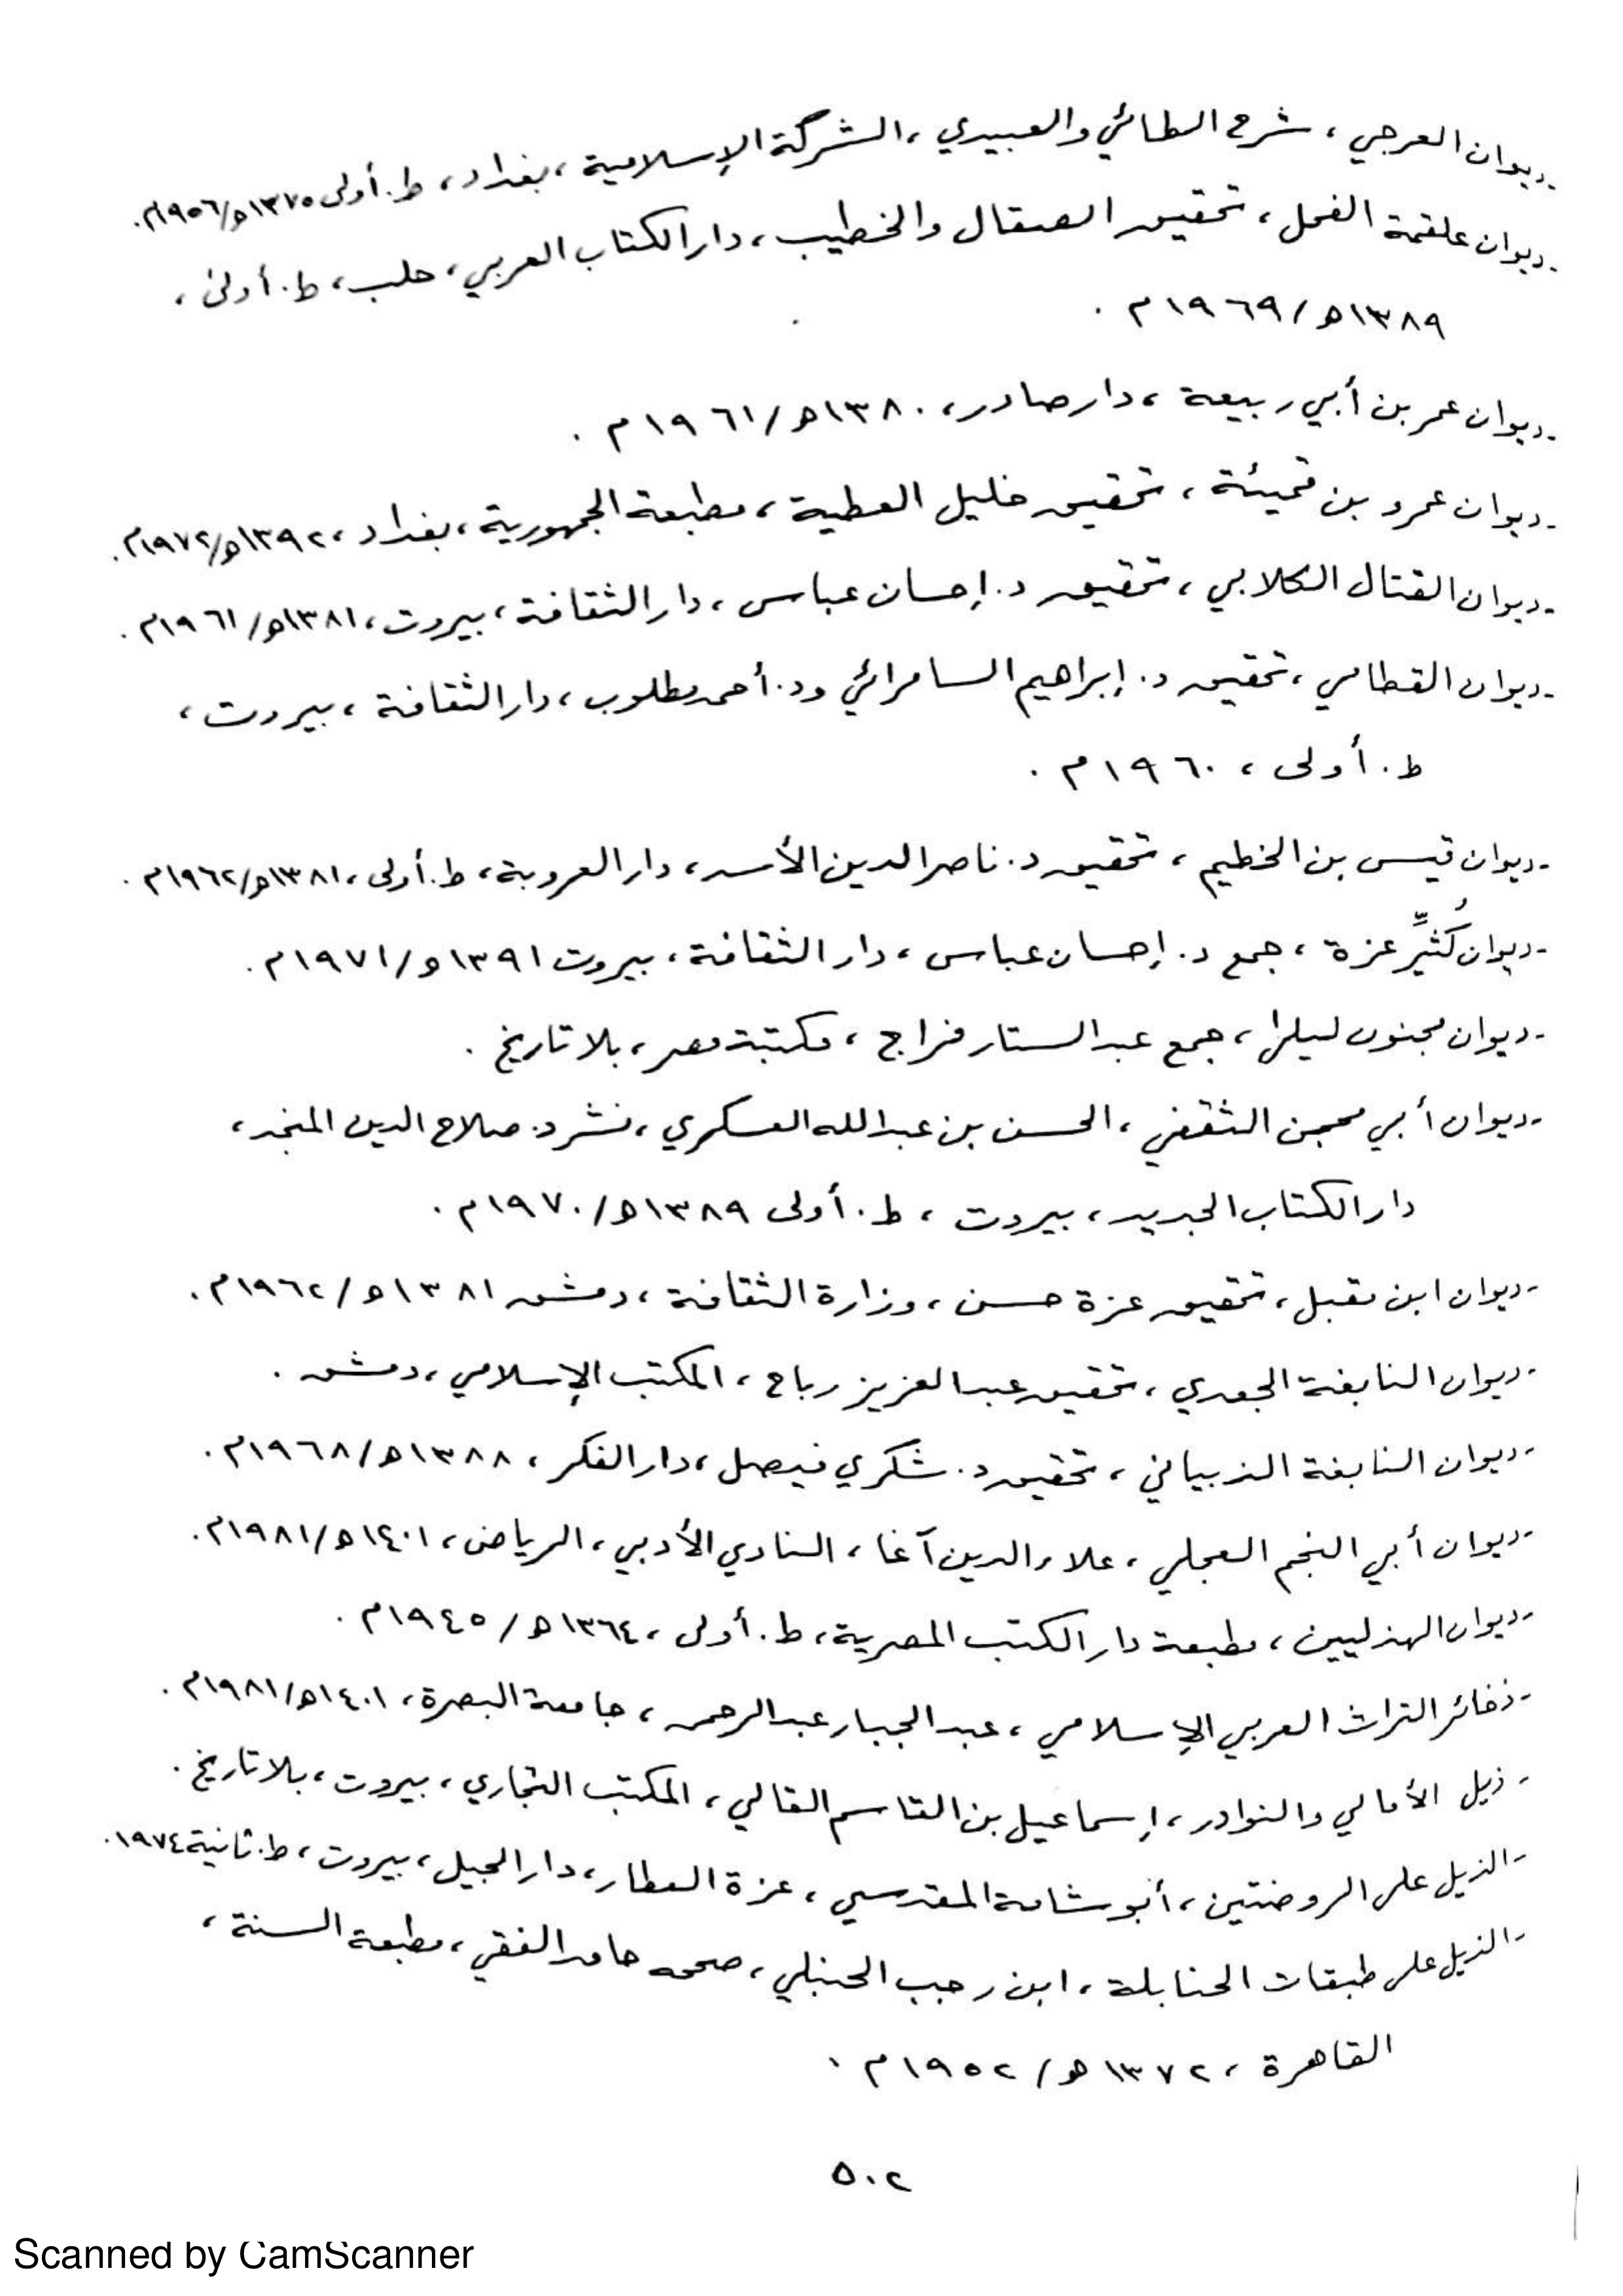 -ديوان العرجي، شرح الطائي والعبيدي، الشركة الإسلامية، بغداد، ط. أولى ١٣٧٥هـ/١٩٥٦م.
-ديوان علقمة الفحل، تحقيق الصقال والخطيب، دار الكتاب العربي، حلب، ط. أولى،
١٣٨٩هـ/١٩٦٩م.
-ديوان عمر بن أبي ربيعة، دار صادر، ١٣٨٠هـ/١٩٦١م.
-ديوان عمرو بن قميئة، تحقيق خليل العطية، مطبعة الجمهورية، بغداد، ١٣٩٢هـ/١٩٧٢م.
-ديوان القتال الكلابي، تحقيق د. إحسان عباس، دار الثقافة، بيروت، ١٣٨١هـ/١٩٦١م.
-ديوان القطامي، تحقيق د. إبراهيم السامرائي ود. أحمد مطلوب، دار الثقافة، بيروت،
ط. أولى، ١٩٦٠م.
-ديوان قيس بن الخطيم، تحقيق د. ناصر الدين الأسد، دار العروبة، ط. أولى، ١٣٨١هـ/١٩٦٢م.
-ديوانُ كُثيِّر عزة، جمع د. إحسان عباس، دار الثقافة، بيروت ١٣٩١هـ/١٩٧١م.
-ديوان مجنون ليلى، جمع عبد الستار فراج، مكتبة مصر، بلا تاريخ.
-ديوان أبي محجن الثقفي، الحسن بن عبد الله العسكري، نشر د. صلاح الدين المنجد،
دار الكتاب الجديد، بيروت، ط. أولى ١٣٨٩هـ/١٩٧٠م.
-ديوان ابن مقبل، تحقيق عزة حسن، وزارة الثقافة، دمشق ١٣٨١هـ/١٩٦٢م.
-ديوان النابغة الجعدي، تحقيق عبد العزيز رباح، المكتب الإسلامي، دمشق.
-ديوان النابغة الذبياني، تحقيق د. شكري فيصل، دار الفكر، ١٣٨٨هـ/١٩٦٨م.
-ديوان أبي النجم العجلي، علاء الدين آغا، النادي الأدبي، الرياض، ١٤٠١هـ/١٩٨١م.
-ديوان الهذليين، مطبعة دار الكتب المصرية، ط. أولى، ١٣٦٤هـ/١٩٤٥م.
-ذخائر التراث العربي الإسلامي، عبد الجبار عبد الرحمن، جامعة البصرة، ١٤٠١هـ/١٩٨١م.
-ذيل الأمالي والنوادر، إسماعيل بن القاسم القالي، المكتب التجاري، بيروت، بلا تاريخ.
-الذيل على الروضتين، أبو شامة المقدسي، عزة العطار، دار الجيل، بيروت، ط. ثانية ١٩٧٤.
-الذيل على طبقات الحنابلة، ابن رجب الحنبلي، صححه حامد الفقي، مطبعة السنة،
القاهرة، ١٣٧٢هـ/١٩٥٢م.
٥٠٢
Scanned by CamScanner